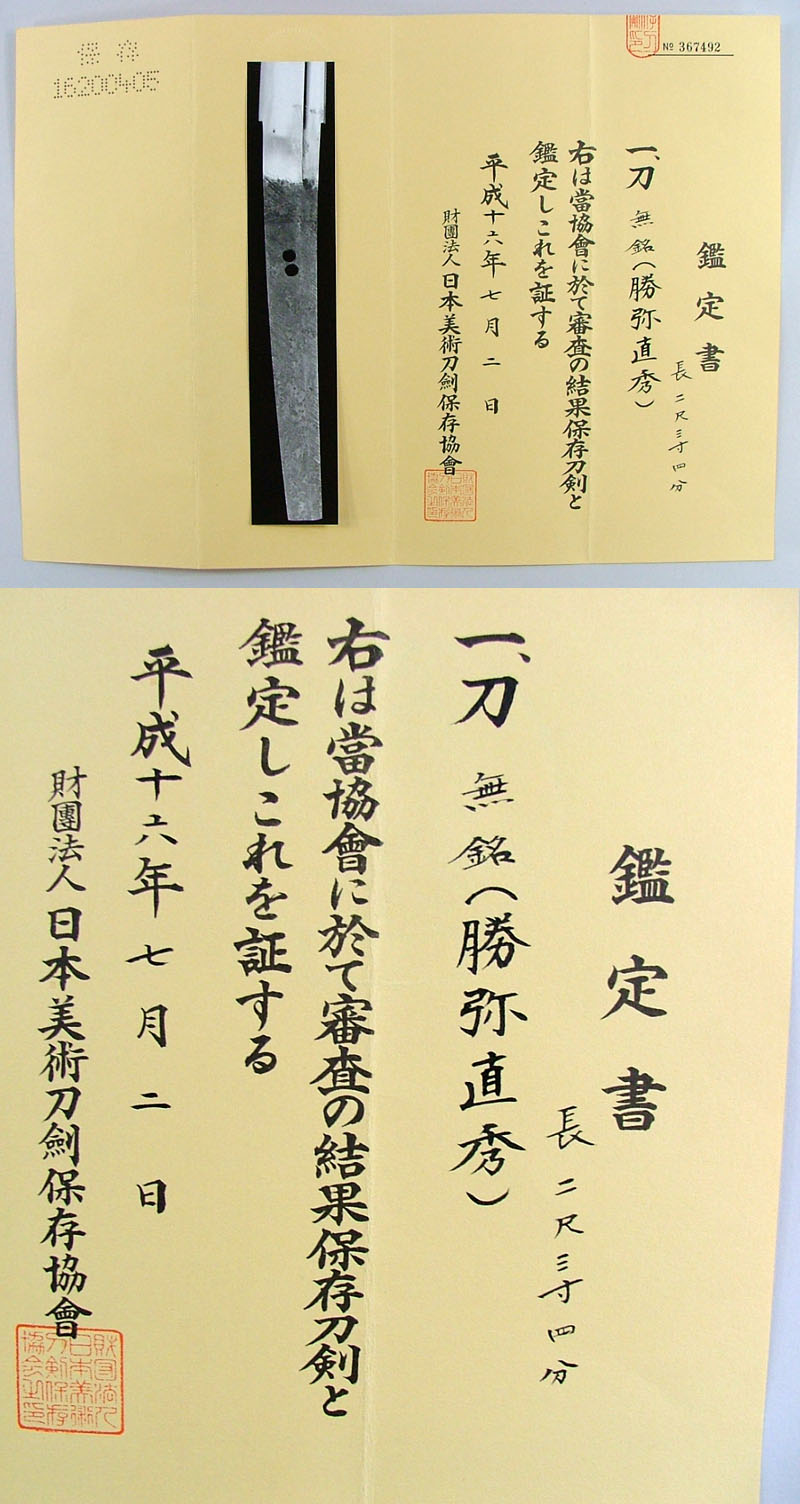 保存
16200405
№ 367492
鑑定書
長二尺三寸四分
一、刀 無銘（勝弥直秀）
右は當協會に於て審査の結果保存刀剣と
鑑定しこれを証する
平成十六年七月二日
財團法人日本美術刀劍保存協會
鑑定書
長二尺三寸四分
一、刀 無銘（勝弥直秀）
右は當協會に於て審査の結果保存刀剣と
鑑定しこれを証する
平成十六年七月二日
財團法人日本美術刀劍保存協會
財団法人
日本美術
刀剣保存
協会之印